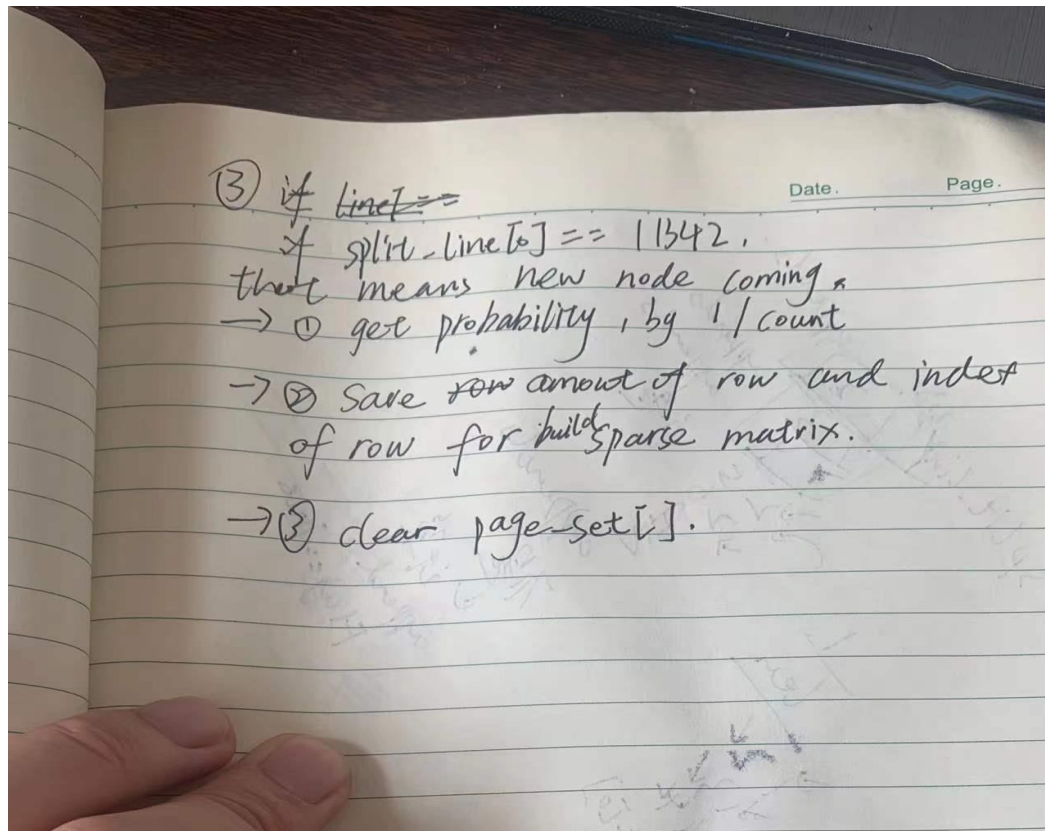 Date. Page.
③ if line[==
if split_line[0] == 11342.
that means new node coming.
→ ① get probability, by 1 / count
→ ② Save row amout of row and index
of row for build sparse matrix.
→ ③ clear page_set[].